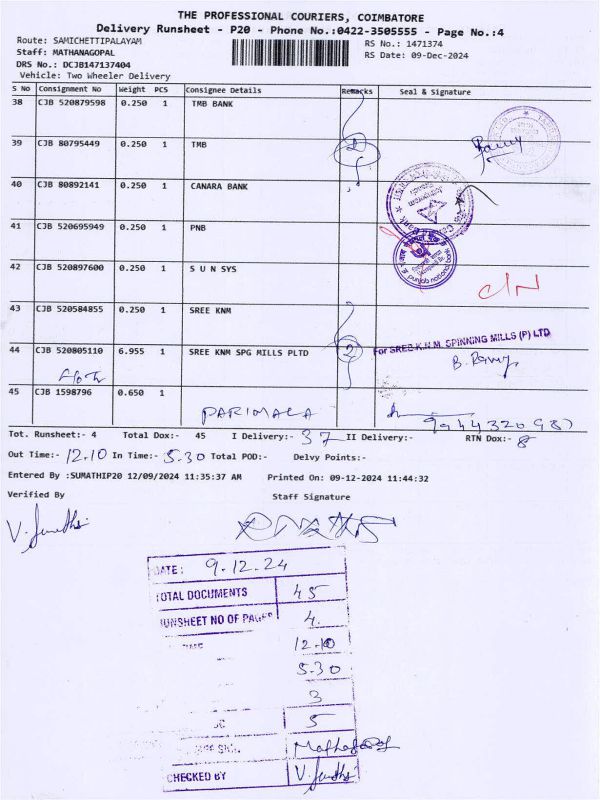 THE PROFESSIONAL COURIERS, COIMBATORE
Delivery Runsheet - P20 - Phone No.:0422-3505555 - Page No.:4
Route: SAMICHETTIPALAYAM
RS No.: 1471374
Staff: MATHANAGOPAL
RS Date: 09-Dec-2024
DRS No.: DCJB147137404
Vehicle: Two Wheeler Delivery
S No Consignment No Weight PCS Consignee Details Remarks Seal & Signature
38 CJB 520879598 0.250 1 TMB BANK
39 CJB 80795449 0.250 1 TMB 2
40 CJB 80892141 0.250 1 CANARA BANK
41 CJB 520695949 0.250 1 PNB
punjab national bank
42 CJB 520897600 0.250 1 S U N SYS
C/N
43 CJB 520584855 0.250 1 SREE KNM
For SREE K.N.M. SPINNING MILLS (P) LTD
44 CJB 520805110 6.955 1 SREE KNM SPG MILLS PLTD 2
45 CJB 1598796 0.650 1
PARIMALA
Tot. Runsheet:- 4 Total Dox:- 45 I Delivery:- 37 II Delivery:- RTN Dox:- 8
Out Time:- 12.10 In Time:- 5.30 Total POD:- Delvy Points:-
Entered By :SUMATHIP20 12/09/2024 11:35:37 AM Printed On: 09-12-2024 11:44:32
Verified By Staff Signature
DATE: 9.12.24
TOTAL DOCUMENTS 45
RUNSHEET NO OF PAGES 4.
12.10
5.30
3
5
CHECKED BY